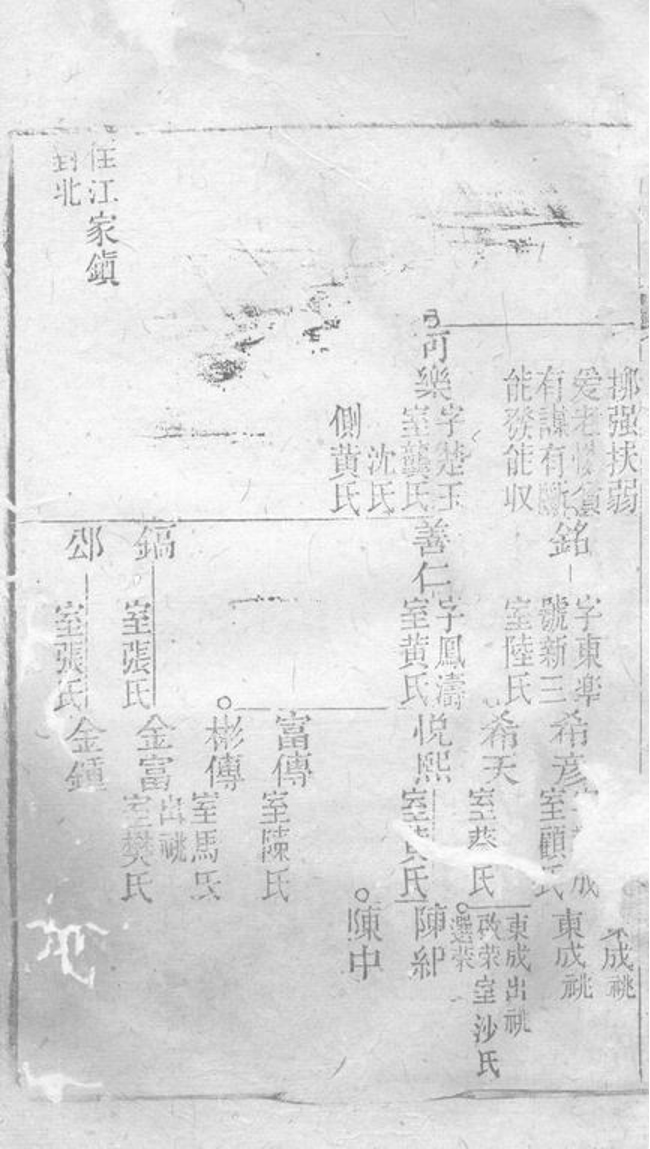 挪强扶弱
爱老憐貧
有謀有斷
能發能収
可樂
字楚玉
室龔氏
沈氏
側黃氏
住江家鎮
北
銘
字東楽
號新三
室陸氏
善仁
字鳳濤
室黃氏
鎬
室張氏
邵
室張氏
希彦
室顧氏
希天
室蔡氏
悦熙
室黃氏
富傳
室陳氏
彬傳
室馬氏
金富
出祧
室樊氏
金鍾
成祧
東成祧
東成出祧
啟荣室沙氏
選荣
陳卹
陳中